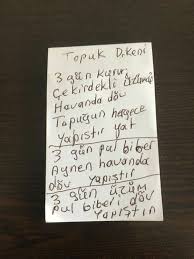 Topuk Dikeni
3 gün kuru
Çekirdekli üzümü
Havanda döv
Topuğun hergece
Yapıştır yat
3 gün pul biber
Aynen havanda
döv yapıştır
3 gün üzüm
pul biberi döv
yapıştın